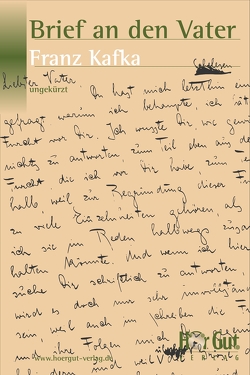 Brief an den Vater
Franz Kafka
ungekürzt
Schelesen
Liebster Vater,
Du hast mich letzthin einmal
gefragt warum ich behaupte, ich hätte
Furcht vor Dir. Ich wusste Dir wie gewöhnlich
nichts zu antworten, zum Teil eben aus der
Furcht die ich vor Dir habe zum
halb weil zur Begründung dieser Furcht
zu viele Einzelnheiten gehören, als
ich sie im Reden halbwegs zusammen
halten könnte. Und wenn ich hier
suche Dir schriftlich zu antworten
wird es doch nur sehr unvollständig
sein weil auch im Schreiben die Furcht
ihre Folgen mich
und weil
Hör Gut
VERLAG
www.hoergut-verlag.de